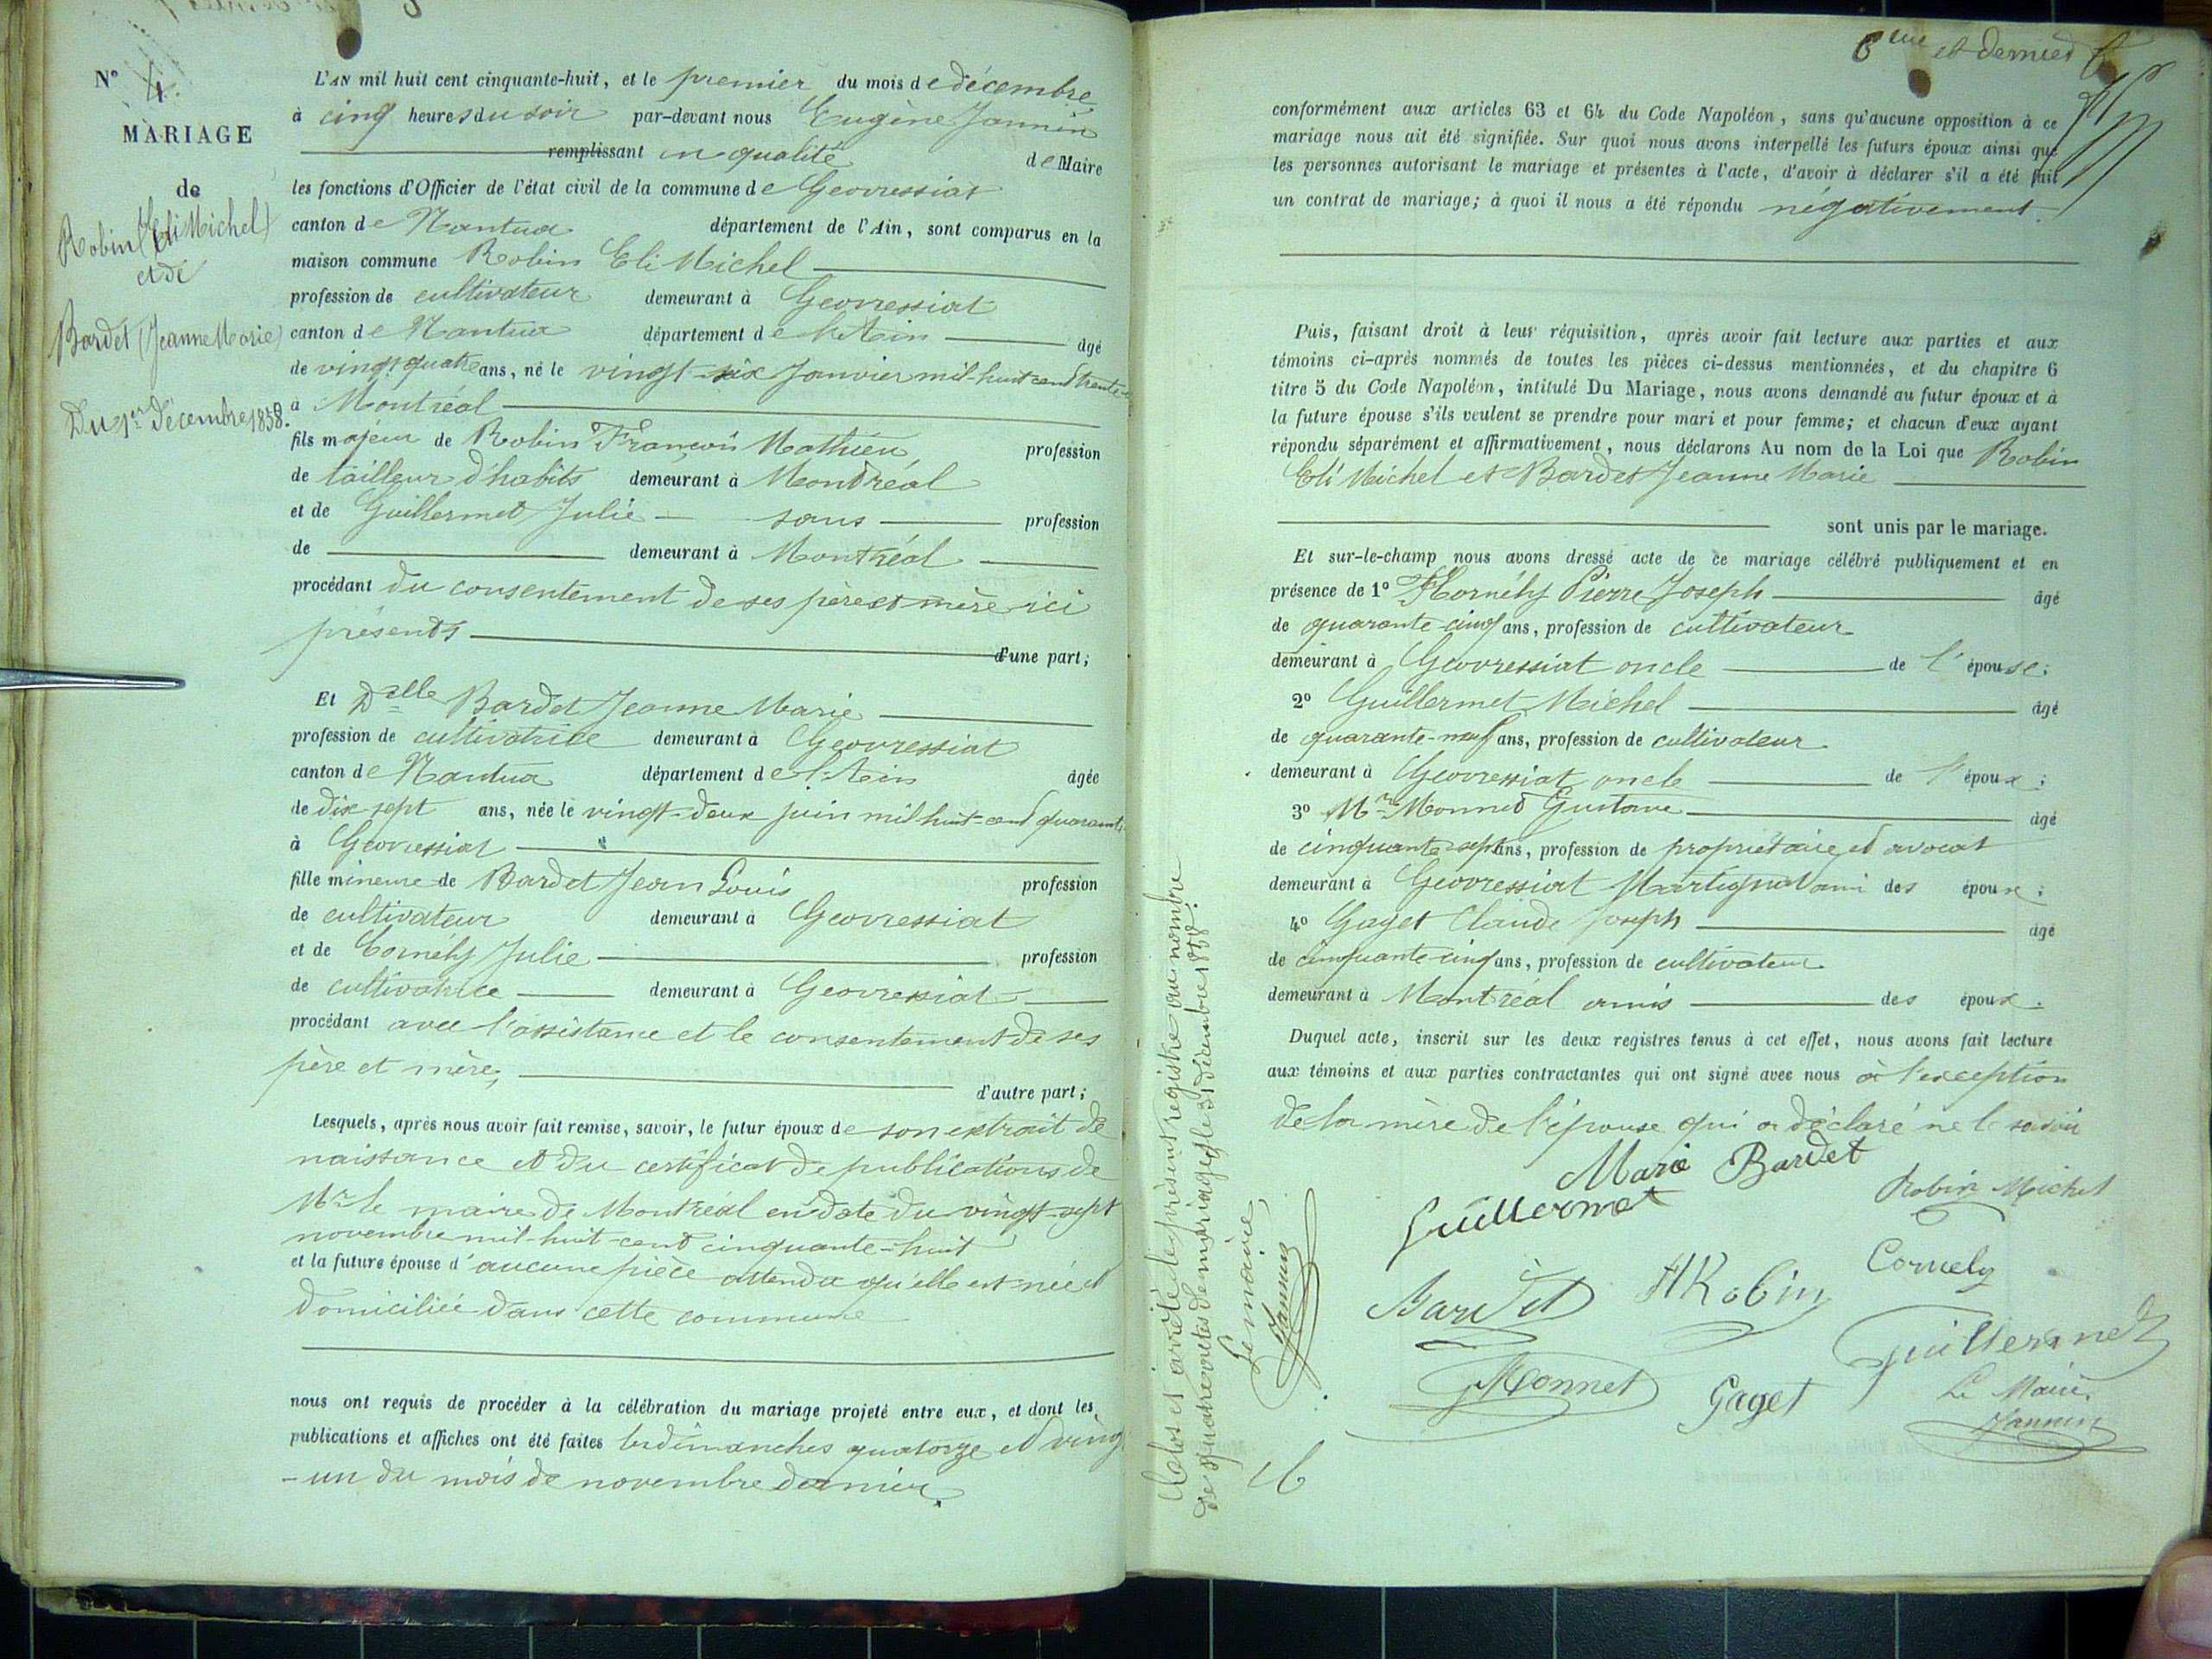 N° 4.
MARIAGE
de
Robin (Eli Michel)
et de
Bardet (Jeanne Marie)
Du 1er Décembre 1858.
L'AN mil huit cent cinquante-huit, et le premier du mois de décembre
à cinq heures du soir par-devant nous Eugène Jannin
remplissant en qualité de Maire
les fonctions d'Officier de l'état civil de la commune de Geovressiat
canton de Nantua département de l'Ain, sont comparus en la
maison commune Robin Eli Michel
profession de cultivateur demeurant à Geovressiat
canton de Nantua département de l'Ain âgé
de vingt quatre ans, né le vingt-six Janvier mil-huit-cent trente-
à Montréal
fils majeur de Robin François Mathieu profession
de tailleur d'habits demeurant à Montréal
et de Guillermet Julie sans profession
de demeurant à Montréal
procédant du consentement de ses père et mère ici
présents
d'une part;
Et Delle Bardet Jeanne Marie
profession de cultivatrice demeurant à Geovressiat
canton de Nantua département de l'Ain âgée
de dix sept ans, née le vingt-deux juin mil huit-cent quarante
à Geovressiat
fille mineure de Bardet Jean Louis profession
de cultivateur demeurant à Geovressiat
et de Cornély Julie profession
de cultivatrice demeurant à Geovressiat
procédant avec l'assistance et le consentement de ses
père et mère,
d'autre part;
Lesquels, après nous avoir fait remise, savoir, le futur époux de son extrait de
naissance et du certificat de publications de
Mr le maire de Montréal en date du vingt-sept
novembre mil-huit-cent cinquante-huit
et la future épouse d'aucune pièce attendu qu'elle est née et
domiciliée dans cette commune
nous ont requis de procéder à la célébration du mariage projeté entre eux, et dont les
publications et affiches ont été faites les dimanches quatorze et vingt
-un du mois de novembre dernier.
6eme et dernier
conformément aux articles 63 et 64 du Code Napoléon, sans qu'aucune opposition à ce
mariage nous ait été signifiée. Sur quoi nous avons interpellé les futurs époux ainsi que
les personnes autorisant le mariage et présentes à l'acte, d'avoir à déclarer s'il a été fait
un contrat de mariage; à quoi il nous a été répondu négativement.
Puis, faisant droit à leur réquisition, après avoir fait lecture aux parties et aux
témoins ci-après nommés de toutes les pièces ci-dessus mentionnées, et du chapitre 6
titre 5 du Code Napoléon, intitulé Du Mariage, nous avons demandé au futur époux et à
la future épouse s'ils veulent se prendre pour mari et pour femme; et chacun d'eux ayant
répondu séparément et affirmativement, nous déclarons Au nom de la Loi que Robin
Eli Michel et Bardet Jeanne Marie
sont unis par le mariage.
Et sur-le-champ nous avons dressé acte de ce mariage célébré publiquement et en
présence de 1° Cornély Pierre Joseph âgé
de quarante-cinq ans, profession de cultivateur
demeurant à Geovressiat oncle de l'épouse;
2° Guillermet Michel âgé
de quarante-neuf ans, profession de cultivateur
demeurant à Geovressiat oncle de l'époux;
3° Mr Monnet Gustave âgé
de cinquante-sept ans, profession de propriétaire et avocat
demeurant à Geovressiat Martignat ami des époux;
4° Gaget Claude Joseph âgé
de cinquante-cinq ans, profession de cultivateur
demeurant à Montréal amis des époux.
Duquel acte, inscrit sur les deux registres tenus à cet effet, nous avons fait lecture
aux témoins et aux parties contractantes qui ont signé avec nous à l'exception
de la mère de l'épouse qui a déclaré ne le savoir
Marie Bardet
Guillermet
Robin Michel
Bardet
Robin
Cornely
Guillermet
Monnet
Gaget
Le Maire,
Jannin
Clos et arrêté le présent registre au nombre
de quatre actes de mariages le 31 décembre 1858.
Le maire,
Jannin